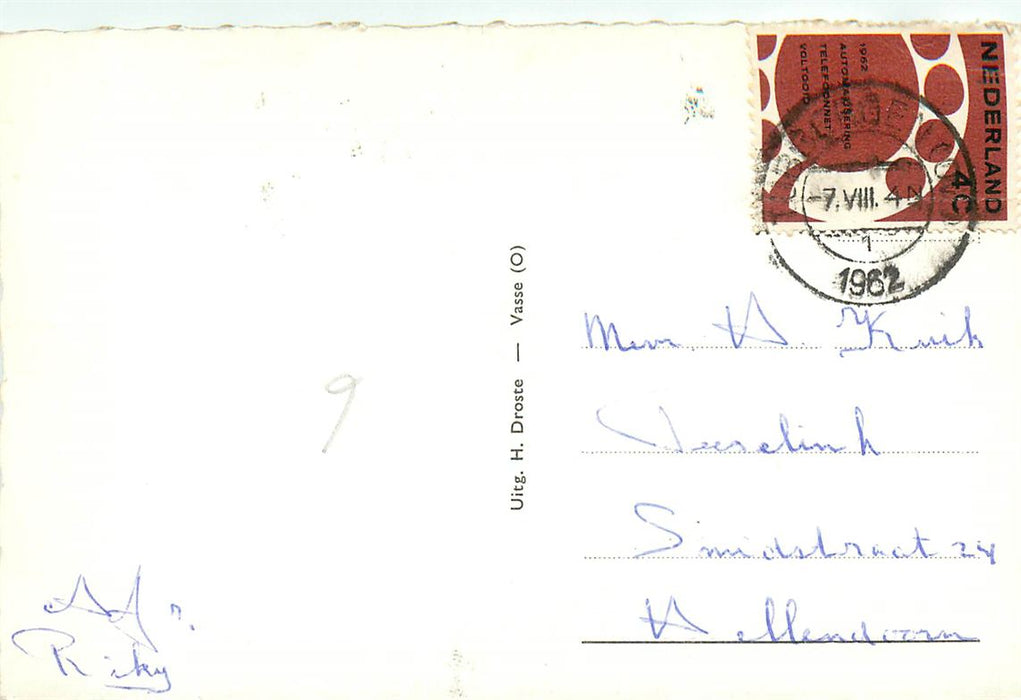 NEDERLAND
4C
1962
AUTOMATISERING
TELEFOONNET
VOLTOOID
-7.VIII.4N
1
1962
Uitg. H. Droste — Vasse (O)
9
Mevr. H. Kuik
Smidstraat 24
Hellendoorn
Riky